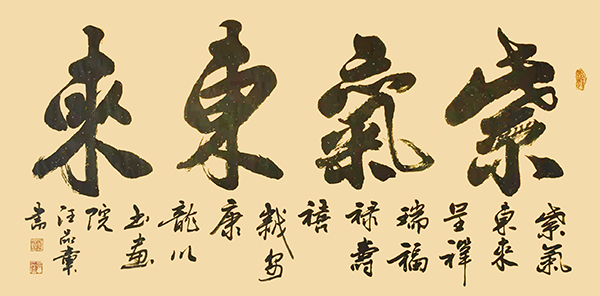 紫氣東來
紫氣
東來
呈祥
瑞福
祿壽
禧
安
康
龍川
书畫
院
汪品章
書